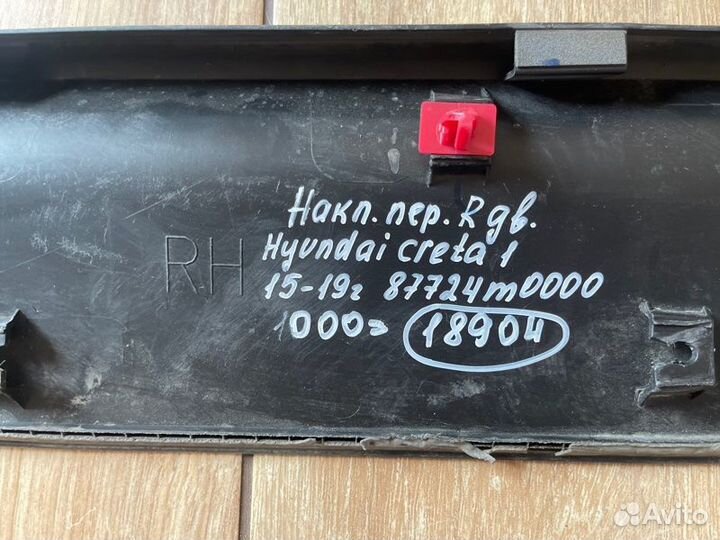 Накл. пер. R дв.
RH
Hyundai creta 1
15-19г 87724m0000
1000= 18904
Avito